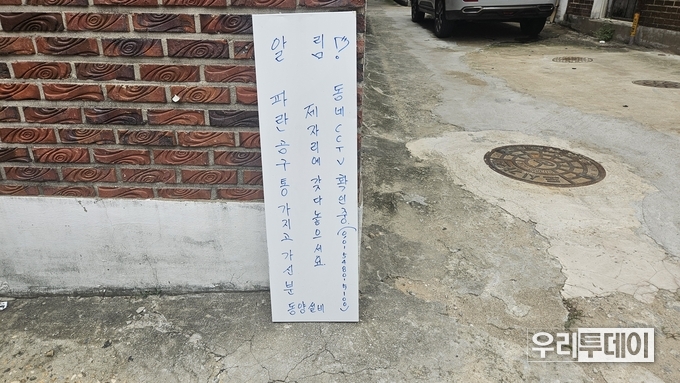 알림!
파란공구통 가지고 가신분
제자리에 갖다놓으세요.
동네 CCTV 확인중
동양설비
우리투데이